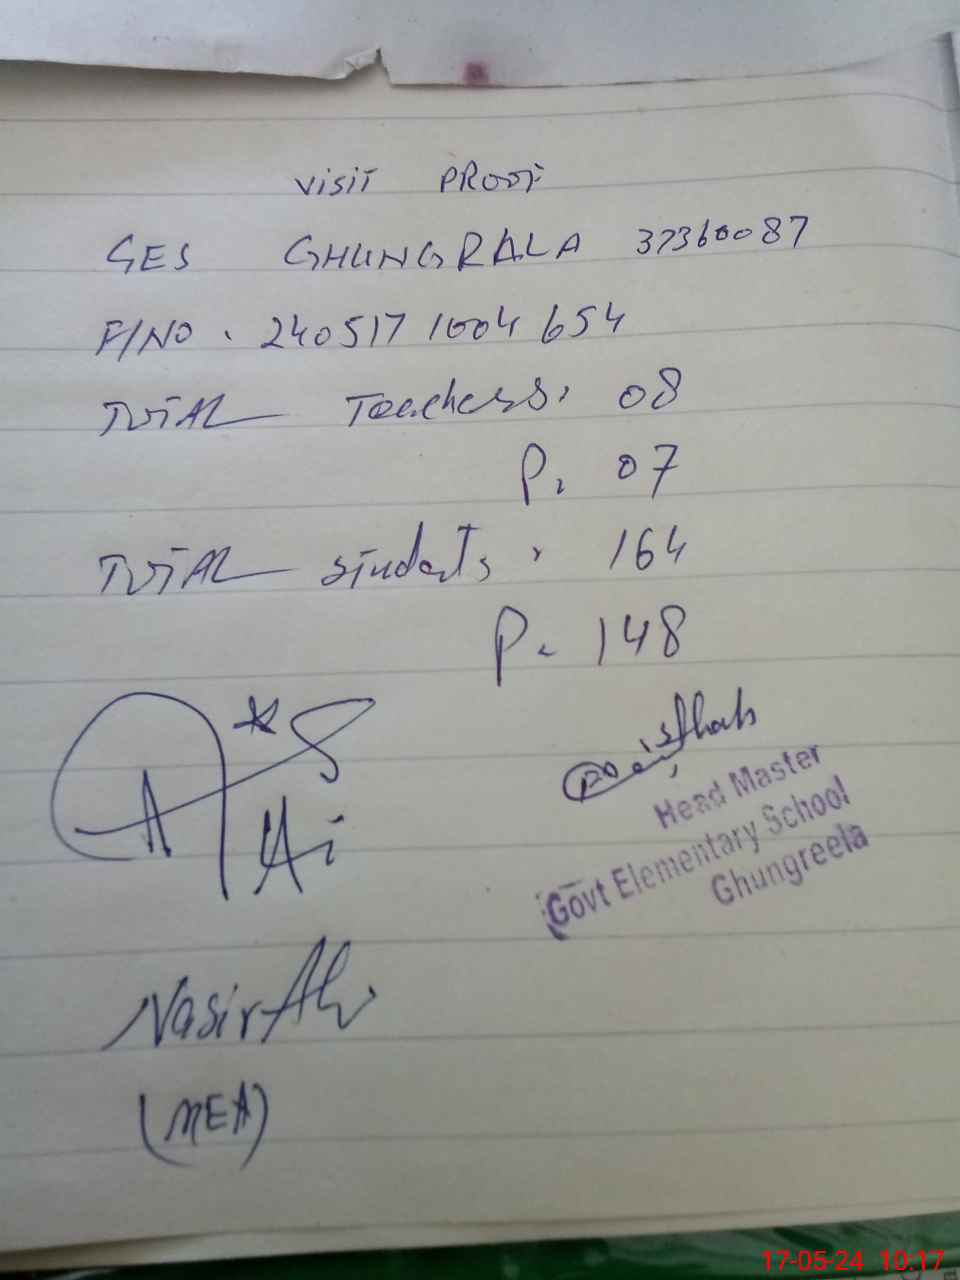 Visit PROOF
GES GHUNGRALA 37360087
F/NO. 240517 1004 654
TOTAL Teachers. 08
P. 07
TOTAL students. 164
P. 148
Head Master
Govt Elementary School
Ghungreela
Nasir Ali
(MEA)
17-05-24 10:17